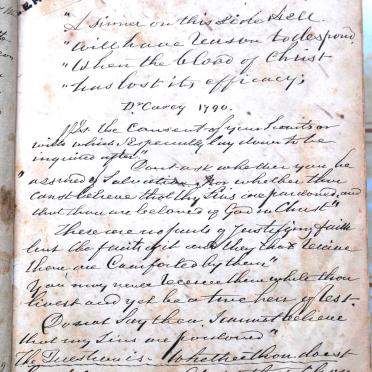 "A Sinner on this side Hell
"Will have reason to despond
"When the blood of Christ
"has lost its efficacy;
Dr Carey 1790.
the consent of your hearts or
wills which I especially lay down to be
inquired after."
Dont ask whether you be
"assured of Salvation, Nor whether thou
canst believe that thy sins are pardoned, and
that thou are beloved of God in Christ"
These are no parts of Justifying faith
but the fruits of it and they that receive
them are Comforted by them"
You may never receive them while thou
livest and yet be a true heir of rest.
Do not Say then. I cannot believe
that my Sins are pardoned"
The Question is. Whether thou doest